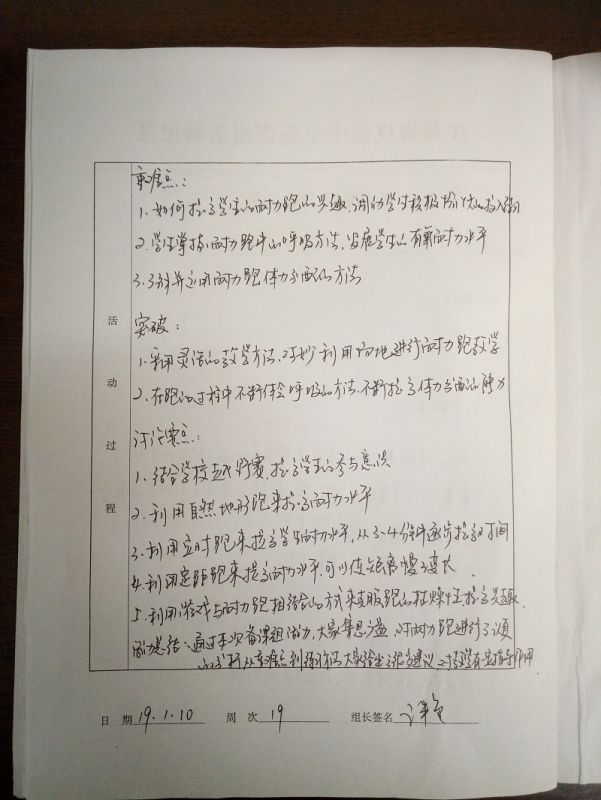 重难点：
1、如何提高学生的耐力跑的兴趣，调动学生积极
2、学生掌握耐力跑中的呼吸方法，发展学生的有氧耐力水平
3、学习并运用耐力跑体力分配的方法
活动过程
突破：
1、采用灵活的教学方法，巧妙利用场地进行耐力跑教学
2、在跑的过程中不断体会呼吸的方法，不断提高体力分配的能力
讨论要点：
1、结合学校越野赛，提高学生的参与意识
2、利用自然地形跑来提高耐力水平
3、利用定时跑来提高学生耐力水平，从3-4分钟逐步提高时间
4、利用定距跑来提高耐力水平，可以使距离慢慢变长
5、利用游戏与耐力跑相结合的方式来克服跑的枯燥性提高兴趣
活动总结：通过本次备课组活动，大家集思广益，对耐力跑进行了
分析，从重难点到 大家给出了很多建议，对
日 期 19.1.10 周 次 19 组长签名